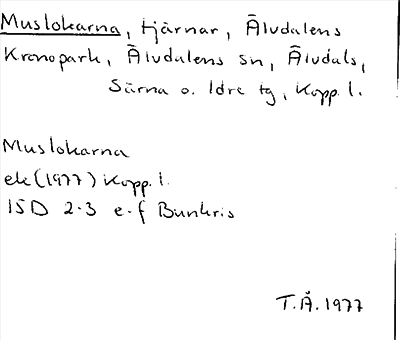 Muslokarna, tjärnar, Älvdalens
Kronopark, Älvdalens sn, Älvdals,
Särna o. Idre tg, Kopp. l.
Muslokarna
ek (1977) Kopp. l.
15D 2-3 e-f Bunkris
T.Å. 1977